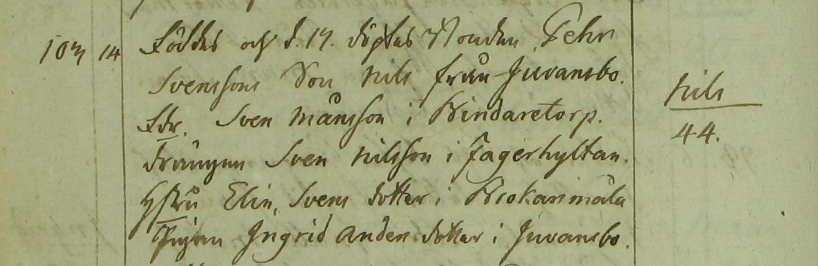 103 14 Föddes och d. 17. döptes Bonden Pehr
Svenssons Son Nils från Juvansbo. Nils
Fdr. Sven Månsson i Bindaretorp. 44.
Drängen Sven Nilsson i Fagerhyltan.
Hstru Elin Svens dotter i Brokamåla
Pigan Ingrid Anders dotter i Juvansbo.